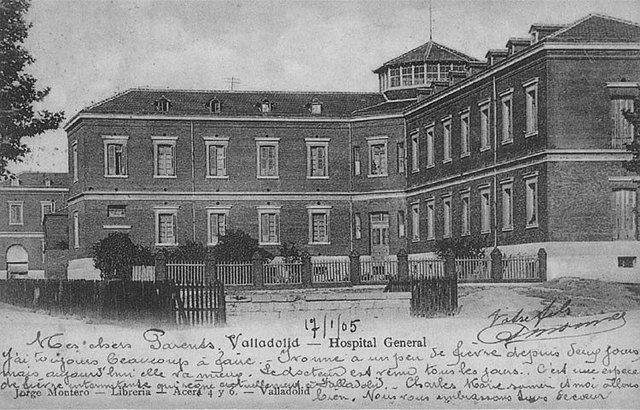 17/1/05
Mes chers Parents, Valladolid — Hospital General
J'ai toujours beaucoup à faire. - Yvonne a un peu de fièvre depuis deux jours
mais aujourd'hui elle va mieux. Le docteur est venu tous les jours. C'est une espèce
de fièvre intermittente qui règne actuellement à Valladolid. - Charles et moi allons
Jorge Montero - Librería - Acera 4 y 6. - Valladolid
bien. Nous vous embrassons